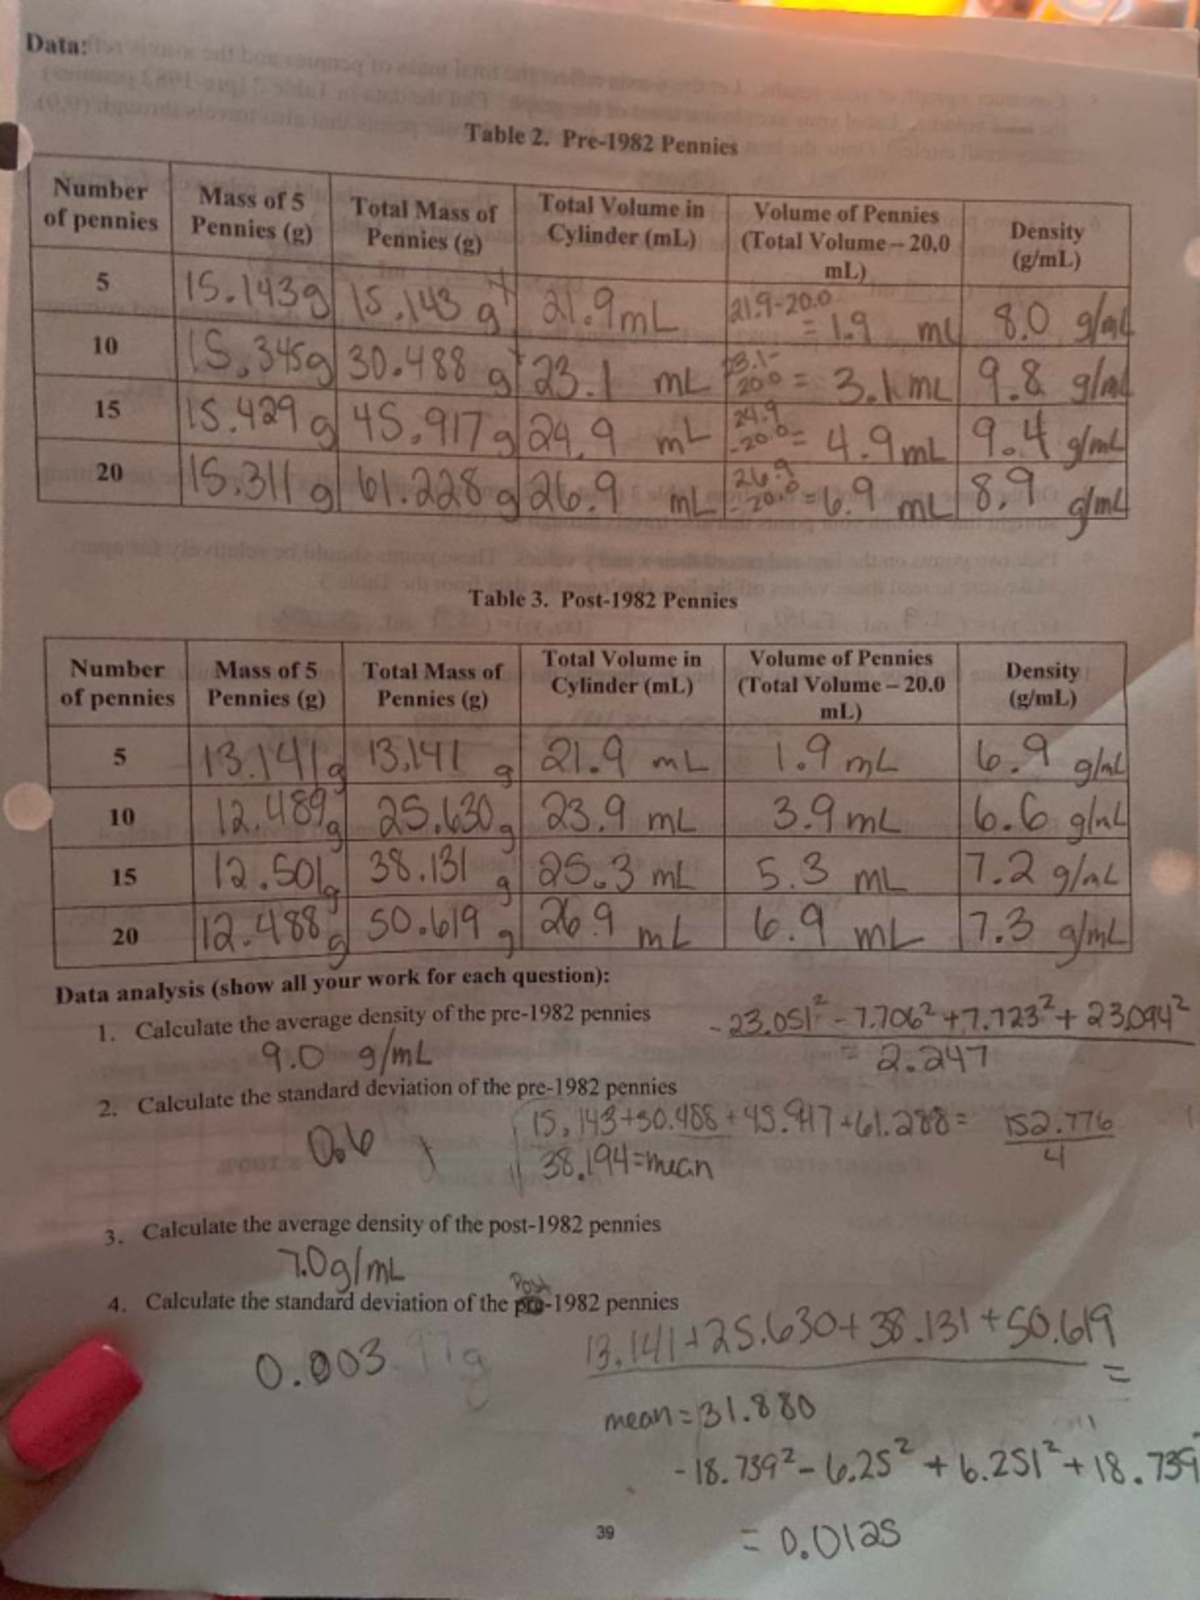 Data:
Table 2. Pre-1982 Pennies
Number of pennies | Mass of 5 Pennies (g) | Total Mass of Pennies (g) | Total Volume in Cylinder (mL) | Volume of Pennies (Total Volume – 20.0 mL) | Density (g/mL)
5 | 15.143g | 15.143 g | 21.9mL | 21.9-20.0 = 1.9 mL | 8.0 g/mL
10 | 15.345g | 30.488 g | 23.1 mL | 23.1- 20.0 = 3.1 mL | 9.8 g/mL
15 | 15.429 g | 45.917 g | 24.9 mL | 24.9 -20.0 = 4.9 mL | 9.4 g/mL
20 | 15.311 g | 61.228 g | 26.9 mL | 26.9 - 20.0 = 6.9 mL | 8.9 g/mL
Table 3. Post-1982 Pennies
Number of pennies | Mass of 5 Pennies (g) | Total Mass of Pennies (g) | Total Volume in Cylinder (mL) | Volume of Pennies (Total Volume – 20.0 mL) | Density (g/mL)
5 | 13.141g | 13.141 g | 21.9 mL | 1.9 mL | 6.9 g/mL
10 | 12.489g | 25.630g | 23.9 mL | 3.9 mL | 6.6 g/mL
15 | 12.501g | 38.131 g | 25.3 mL | 5.3 mL | 7.2 g/mL
20 | 12.488g | 50.619 g | 26.9 mL | 6.9 mL | 7.3 g/mL
Data analysis (show all your work for each question):
1. Calculate the average density of the pre-1982 pennies
-23.051² - 7.706² + 7.723² + 23.094²
9.0 g/mL
= 2.247
2. Calculate the standard deviation of the pre-1982 pennies
0.6
15.143+30.488+45.917+61.288= 152.776
4
38.194=mean
3. Calculate the average density of the post-1982 pennies
7.0g/mL
Post
4. Calculate the standard deviation of the pre-1982 pennies
0.003
13.141+25.630+38.131+50.619 =
mean=31.880
-18.739² - 6.25² + 6.251² + 18.739
39
= 0.0125